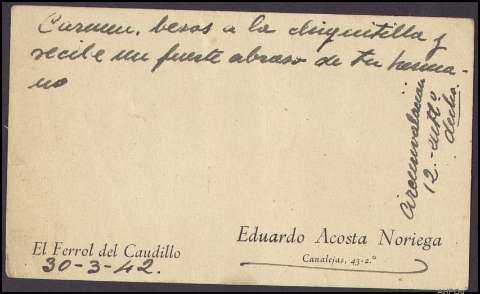 Carmen, besos a la chiquitilla y
recibe un fuerte abraso de tu herma-
no
Circunvalacion
12.-entlº
dcha.
Eduardo Acosta Noriega
Canalejas, 43-2.º
El Ferrol del Caudillo
30-3-42.